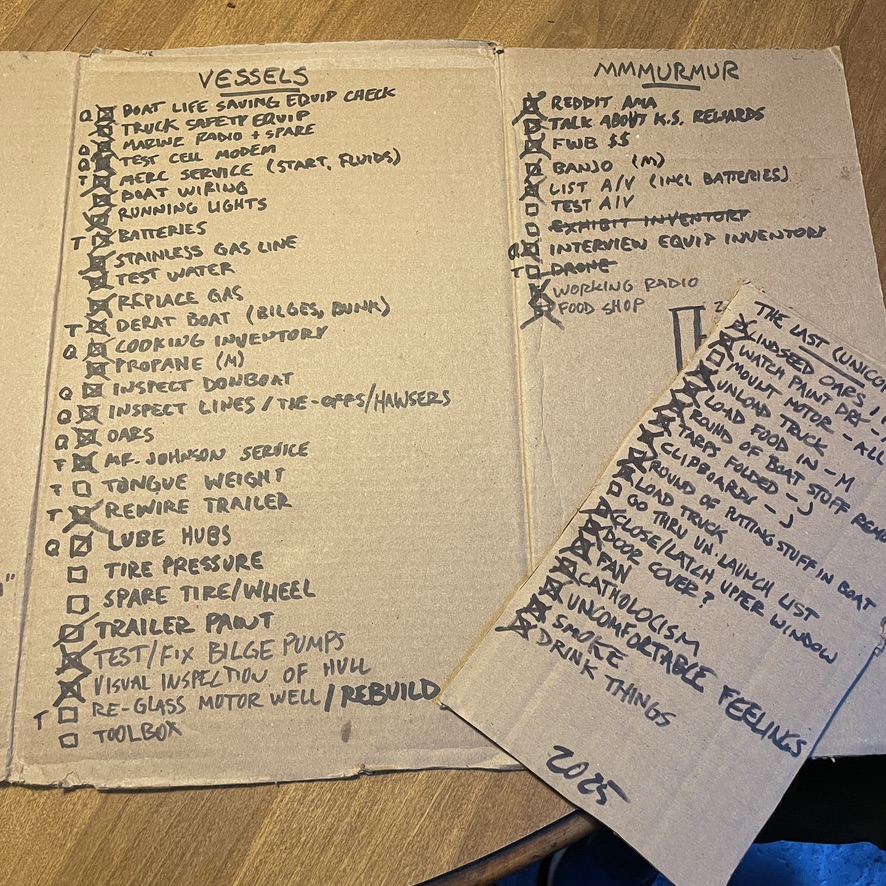 VESSELS
Q BOAT LIFE SAVING EQUIP CHECK
TRUCK SAFETY EQUIP
Q MARINE RADIO + SPARE
Q TEST CELL MODEM
T MERC SERVICE (START, FLUIDS)
BOAT WIRING
RUNNING LIGHTS
T BATTERIES
STAINLESS GAS LINE
TEST WATER
REPLACE GAS
T DERAT BOAT (BILGES, BUNK)
Q COOKING INVENTORY
PROPANE (M)
Q INSPECT DONBOAT
Q INSPECT LINES / TIE-OFFS/HAWSERS
Q OARS
T MR. JOHNSON SERVICE
T TONGUE WEIGHT
T REWIRE TRAILER
Q LUBE HUBS
TIRE PRESSURE
SPARE TIRE/WHEEL
TRAILER PAINT
TEST/FIX BILGE PUMPS
VISUAL INSPECTION OF HULL
T RE-GLASS MOTOR WELL/REBUILD
TOOLBOX
MMMURMUR
REDDIT AMA
TALK ABOUT K.S. REWARDS
FWB $$
BANJO (M)
LIST A/V (INCL BATTERIES)
TEST A/V
EXHIBIT INVENTORY
Q INTERVIEW EQUIP INVENTORY
T DRONE
WORKING RADIO
FOOD SHOP
THE LAST (UNICO
LINDSEED OARS !!
WATCH PAINT DRY
MOUNT MOTOR - ALL
UNLOAD TRUCK
LOAD FOOD IN - M
ROUND OF BOAT STUFF READ
TARPS FOLDED - J
CLIPBOARDS - J
ROUND OF PUTTING STUFF IN BOAT
LOAD TRUCK
GO THRU UN-LAUNCH LIST
CLOSE/LATCH UPPER WINDOW
DOOR COVER?
FAN
CATHOLOCISM
UNCOMFORTABLE FEELINGS
SMOKE
DRINK THINGS
2025